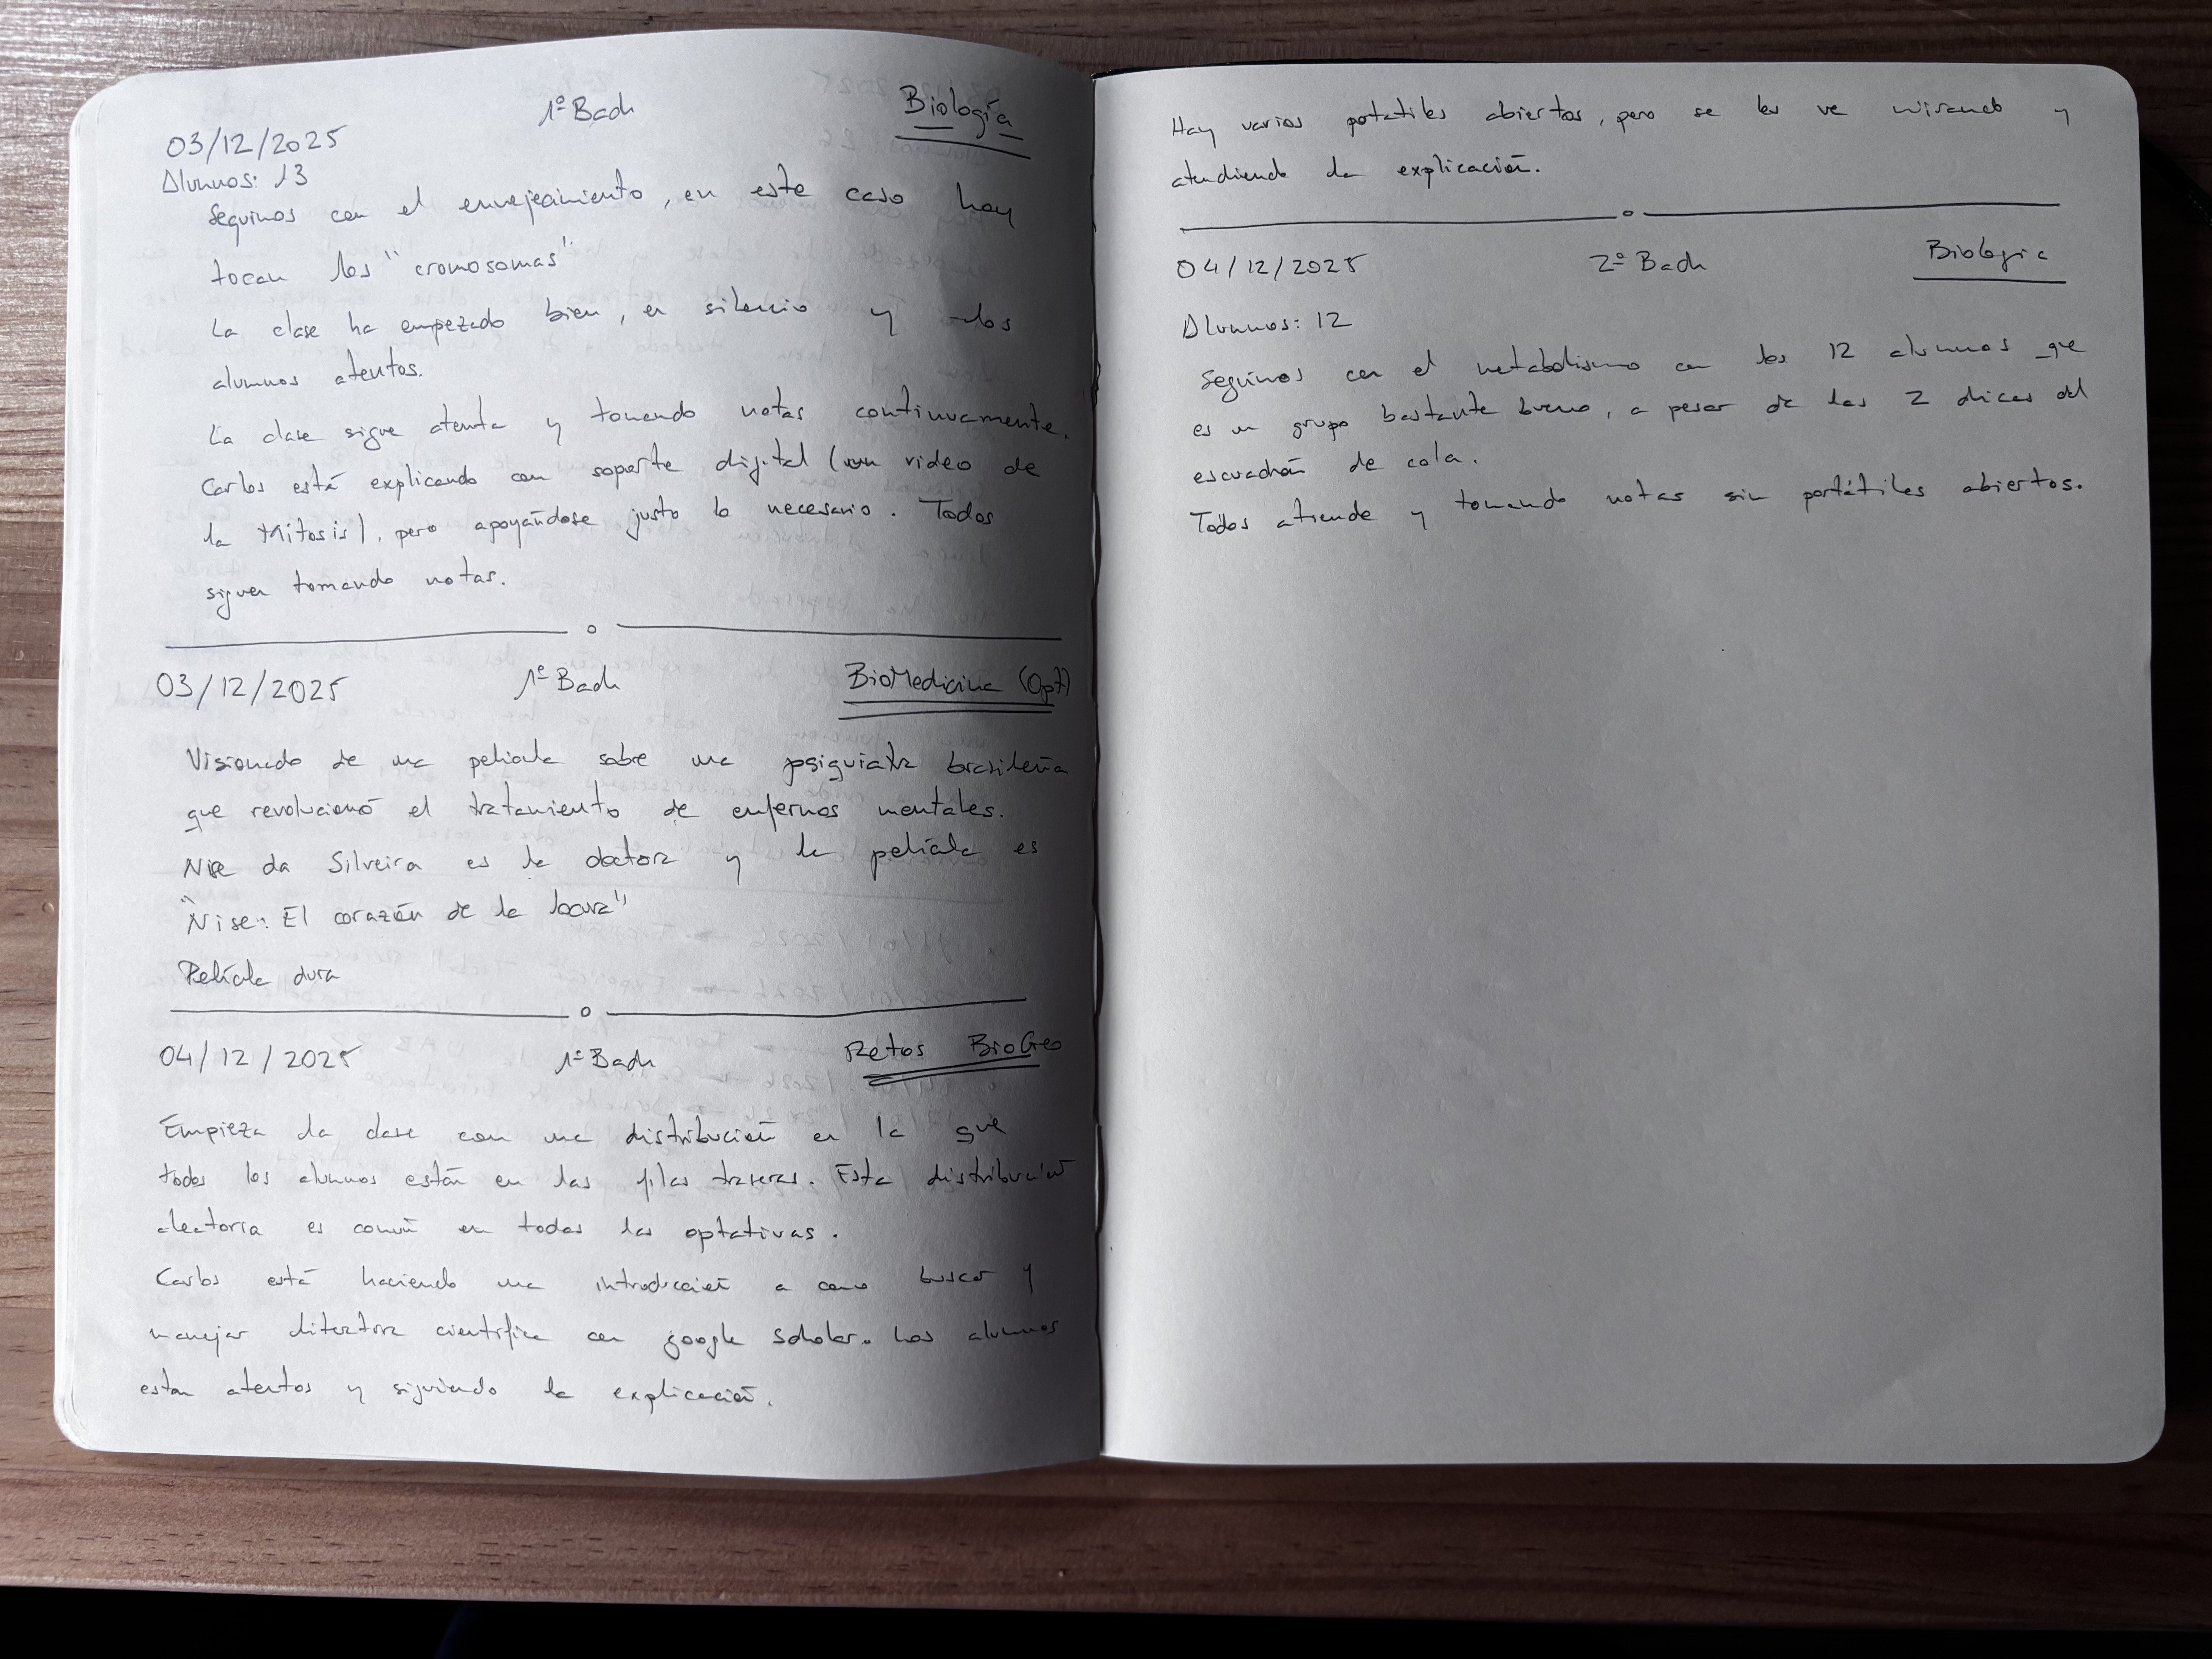 03/12/2025 1º Bach Biología
Alumnos: 13
Seguimos con el envejecimiento, en este caso hoy
tocan los "cromosomas"
La clase ha empezado bien, en silencio y los
alumnos atentos.
La clase sigue atenta y tomando notas continuamente.
Carlos está explicando con soporte digital (un video de
la Mitosis), pero apoyándose justo lo necesario. Todos
siguen tomando notas.
03/12/2025 1º Bach BioMedicina (Opt)
Visionado de una película sobre una psiquiatra brasileña
que revolucionó el tratamiento de enfermos mentales.
Nise da Silveira es la doctora y la película es
"Nise: El corazón de la locura"
Película dura
04/12/2025 1º Bach Retos BioGeo
Empieza la clase con una distribución en la que
todos los alumnos están en las filas traseras. Esta distribución
aleatoria es común en todas las optativas.
Carlos está haciendo una introducción a como buscar y
manejar literatura científica con google scholar. Los alumnos
estan atentos y siguiendo la explicación.
Hay varios portatiles abiertos, pero se les ve mirando y
atendiendo la explicación.
04/12/2025 2º Bach Biologia
Alumnos: 12
Seguimos con el metabolismo con los 12 alumnos que
es un grupo bastante bueno, a pesar de las 2 chicas del
escuadrón de cola.
Todos atiende y tomando notas sin portátiles abiertos.